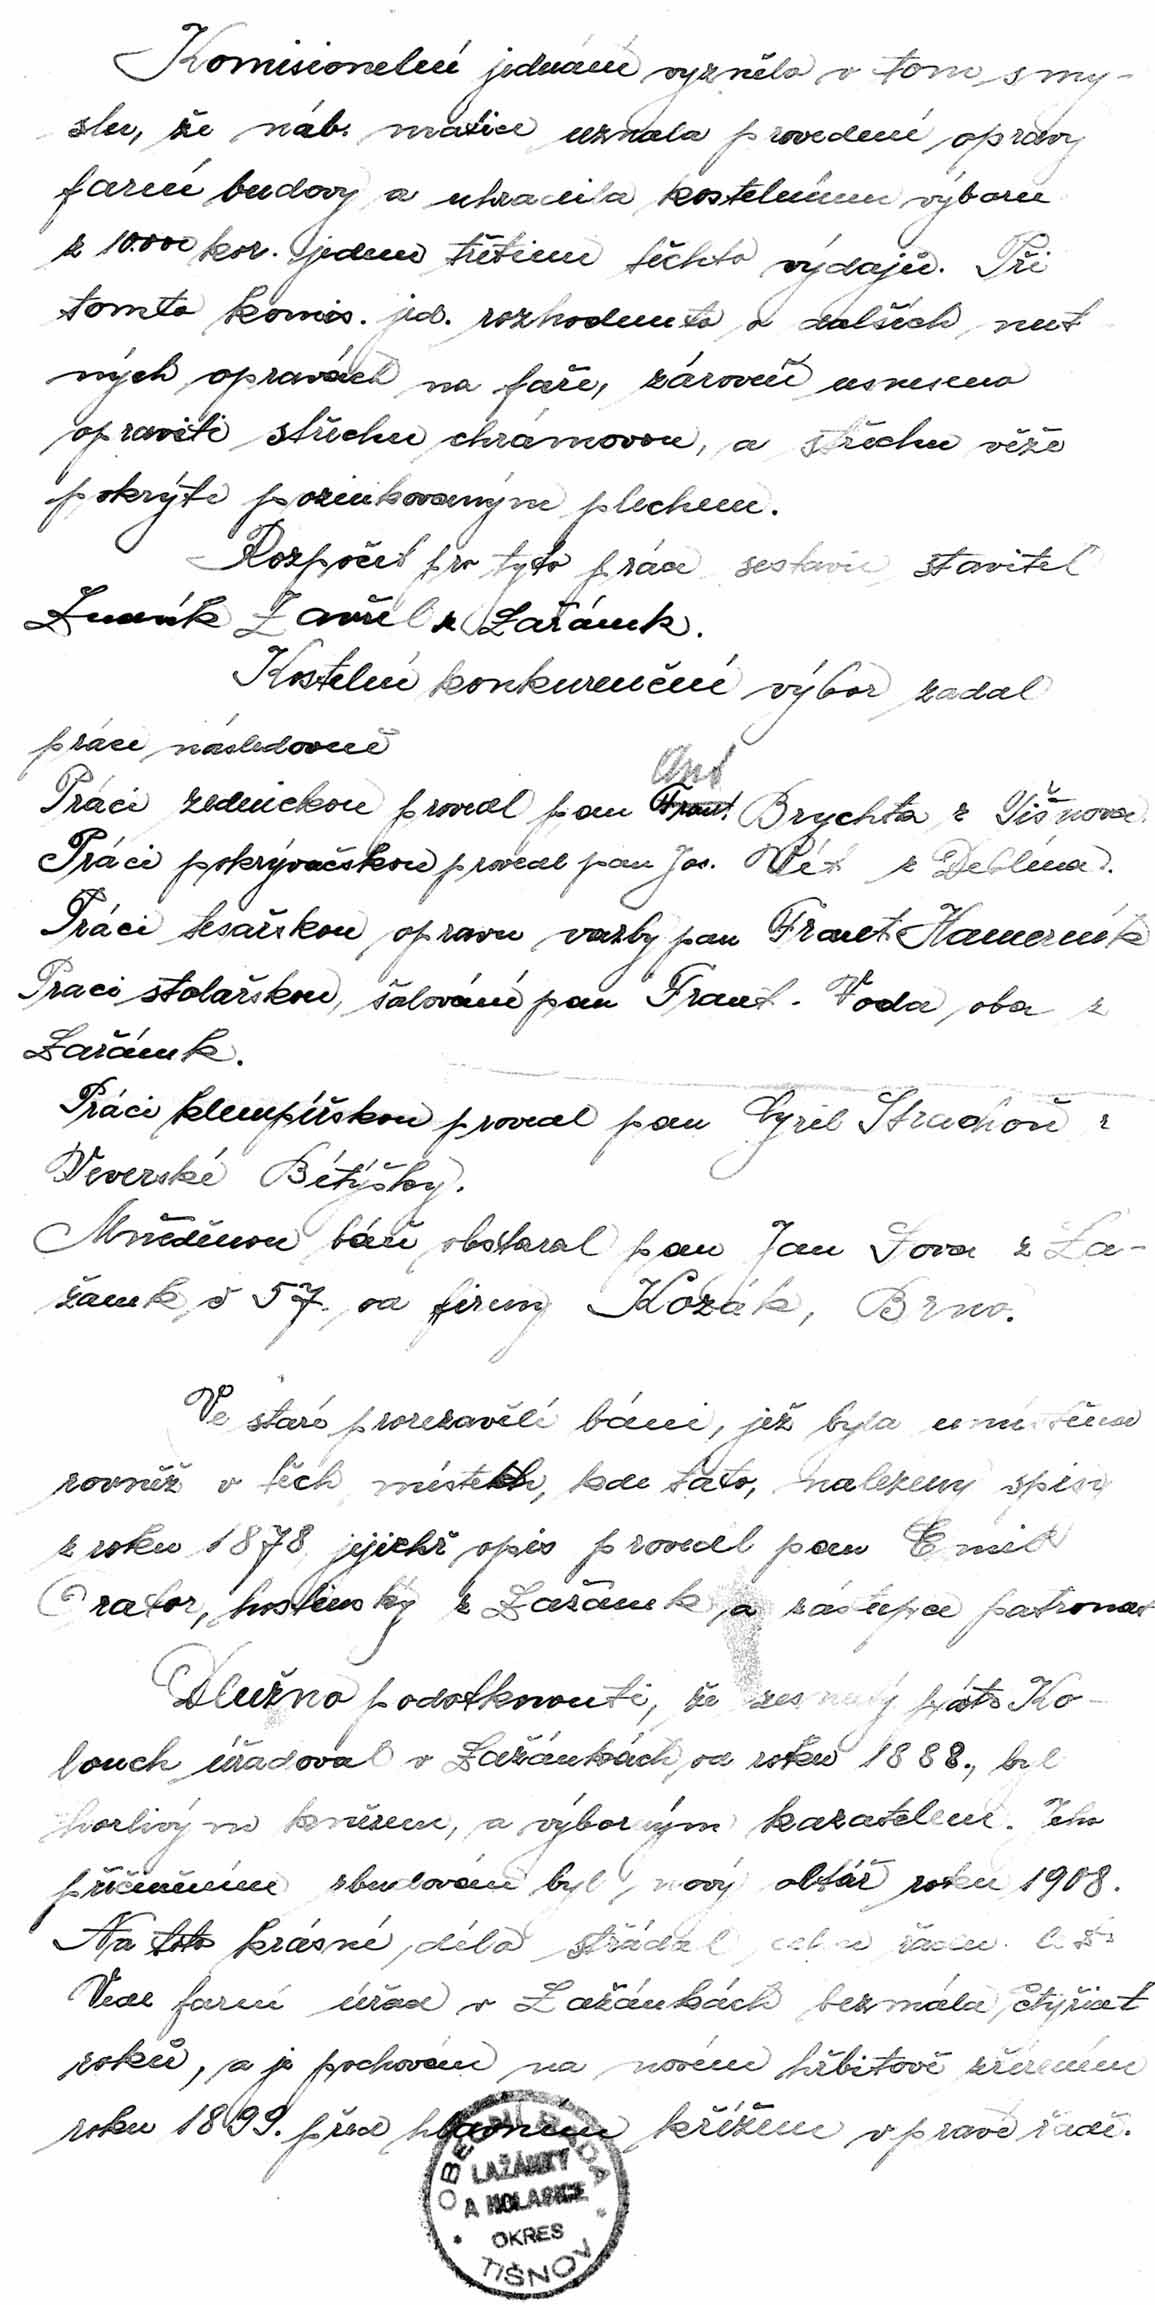 Komisionelní jednání vyznělo v tom smy-
slu, že náb. matice uznala provedení opravy
farní budovy a uhradila kostelnímu výboru
z 10.000 kor. jednu třetinu těchto výdajů. Při
tomto komis. jed. rozhodnuto o dalších nut
ných opravách na faře, zároveň usneseno
opraviti střechu chrámovou, a střechu věže
pokrýti pozinkovaným plechem.
Rozpočet pro tyto práce sestavil stavitel
Zavřel z Lažánek.
Kostelní konkurenční výbor zadal
práce následovně
Práci zednickou provedl pan Ant Brychta z Tišnova.
Práci pokrývačskou provedl pan Jos. Vít z Deblína.
Práci tesařskou opravu vazby pan Frant. Hamerník
Praci stolařskou, šalování pan Frant. Voda oba z
Lažánek.
Práci klempířskou provedl pan Cyril Strachoň z
Veverské Bítýšky.
Mněděnou báň obstaral pan Jan Sova z La-
žánek č 57. od firmy Kozák, Brno.
Ve staré prorezavělé báni, jež byla umístěna
rovněž v těch místech, kde tato, nalezeny spisy
z roku 1878 jejichž opis provedl pan Emil
Orator, hostinský z Lažánek a zástupce patronát
Dlužno podotknouti, že zesnulý páter Ko-
louch úřadoval v Lažánkách od roku 1888., byl
horlivým knězem, a výborným kazatelem. Jeho
přičiněním zbudován byl nový oltář roku 1908.
Na toto krásné dílo střádal celou řadu let.
Vedl farní úřad v Lažánkách bezmála čtyřicet
roků, a je pochován na novém hřbitově zřízeném
roku 1899. před hlavním křížem v pravé řadě.
OBECNÍ RADA
LAŽÁNKY
A HOLASICE
OKRES
TIŠNOV